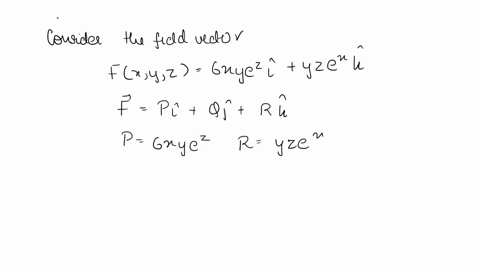 Consider the field vector
F(x,y,z) = 6xye^z î + yze^x k̂
F⃗ = Pî + Qĵ + Rk̂
P = 6xye^z R = yze^x